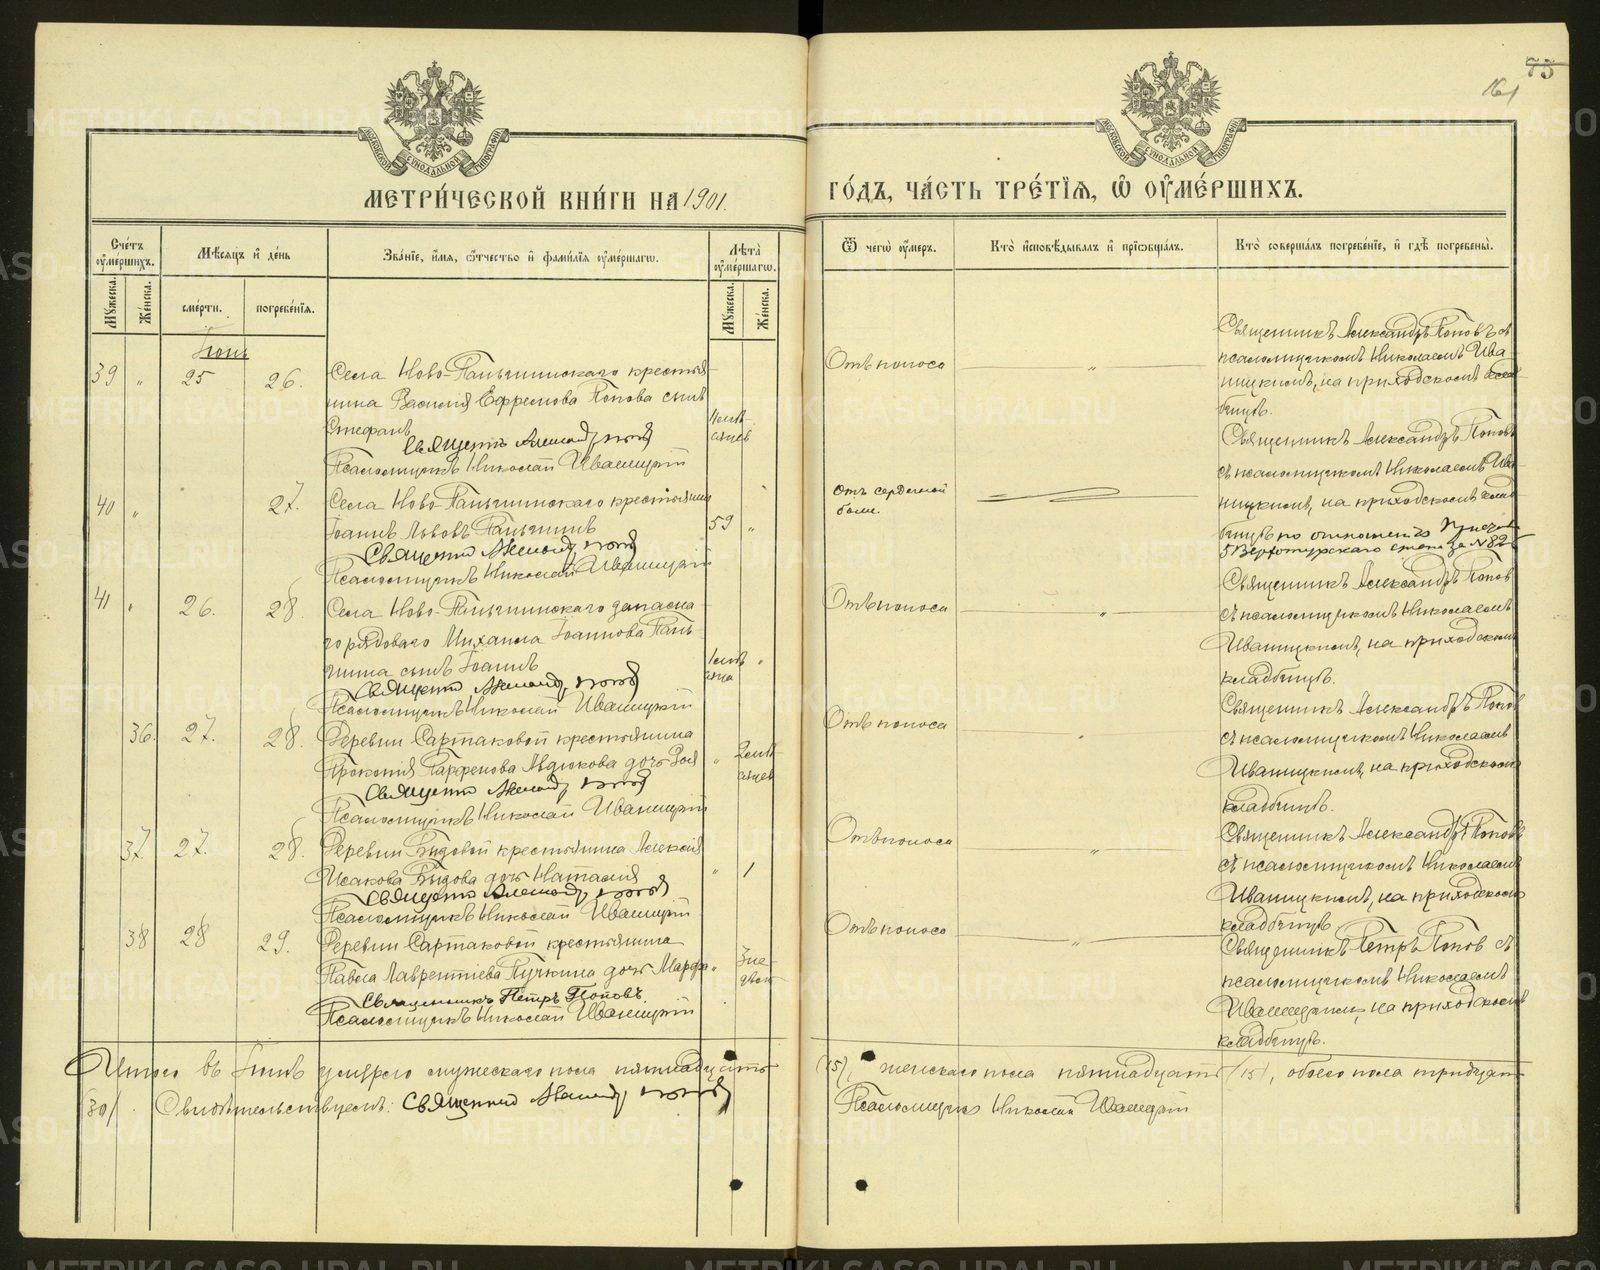 75
161
МЕТРИ́ЧЕСКОЙ КНИ́ГИ НА 1901.
ГО́ДЪ, ЧА́СТЬ ТРЕ́ТІѦ, Ѿ ОУ҆МЕ́РШИХЪ.
Сче́тъ оу҆ме́ршихъ.
Мѣ́сѧцъ и҆ де́нь
Зва́нїе, и҆́мѧ, ѻ҆́тчество и҆ фами́лїѧ оу҆ме́ршагѡ.
Лѣ́та оу҆ме́ршагѡ.
Ѿ чегѡ̀ оу҆́меръ.
Кто̀ и҆сповѣ́дывалъ и҆ прїѡбща́лъ.
Кто̀ соверша́лъ погребе́нїе, и҆ гдѣ̀ погребены̀.
Мꙋ́жеска.
Же́нска.
сме́рти.
погребе́нїѧ.
Мꙋ́жеска.
Же́нска.
Іюнь
39 " 25 26.
Села Ново-Паньшинскаго крестья-
нина Василія Ефремова Попова сынъ
Стефанъ
Священникъ Александръ Поповъ
Псаломщикъ Николай Иваницкій
Отъ поноса
"
Священникъ Александръ Поповъ съ
псаломщикомъ Николаемъ Ива-
ницкимъ, на приходскомъ клад-
бищѣ.
40 " 27.
Села Ново-Паньшинскаго крестьянинъ
Іоаннъ Львовъ Паньшинъ
59 "
Священникъ Александръ Поповъ
Псаломщикъ Николай Иваницкій
Отъ сердечной
боли.
Священникъ Александръ Поповъ
съ псаломщикомъ Николаемъ Ива-
ницкимъ, на приходскомъ клад-
бищѣ по отношенію
5 Верхотурскаго за № 826
41 " 26. 28.
Села Ново-Паньшинскаго запасна-
го рядоваго Михаила Іоаннова Пань-
шина сынъ Іоаннъ
Священникъ Александръ Поповъ
Псаломщикъ Николай Иваницкій
Отъ поноса
"
Священникъ Александръ Поповъ
съ псаломщикомъ Николаемъ
Иваницкимъ, на приходскомъ
кладбищѣ.
36. 27. 28.
Деревни Сартаковой крестьянина
Прокопія Парфенова Авдюкова дочь Зоя
Священникъ Александръ Поповъ
Псаломщикъ Николай Иваницкій
Отъ поноса
"
Священникъ Александръ Попов
съ псаломщикомъ Николаемъ
Иваницкимъ, на приходскомъ
кладбищѣ.
37. 27. 28.
Деревни Быдовой крестьянина Алексія
Исакова Быдова дочь Наталія
" 1
Священникъ Александръ Поповъ
Псаломщикъ Николай Иваницкій
Отъ поноса
"
Священникъ Александръ Поповъ
съ псаломщикомъ Николаемъ
Иваницкимъ, на приходскомъ
кладбищѣ.
38 28 29.
Деревни Сартаковой крестьянина
Павла Лаврентіева Пучкина дочь Марфа
" 3 не-
дѣли
Священникъ Петръ Поповъ.
Псаломщикъ Николай Иваницкій
Отъ поноса
"
Священникъ Петръ Попов съ
псаломщикомъ Николаемъ
Иваницкимъ, на приходскомъ
кладбищѣ.
Итого въ Іюнѣ умерло мужескаго пола пятнадцать (15), женскаго пола пятнадцать (15), обоего пола тридцать
(30). Свидѣтельствуемъ: Священникъ Александръ Поповъ Псаломщикъ Николай Иваницкій
METRIKI.GASO-URAL.RU